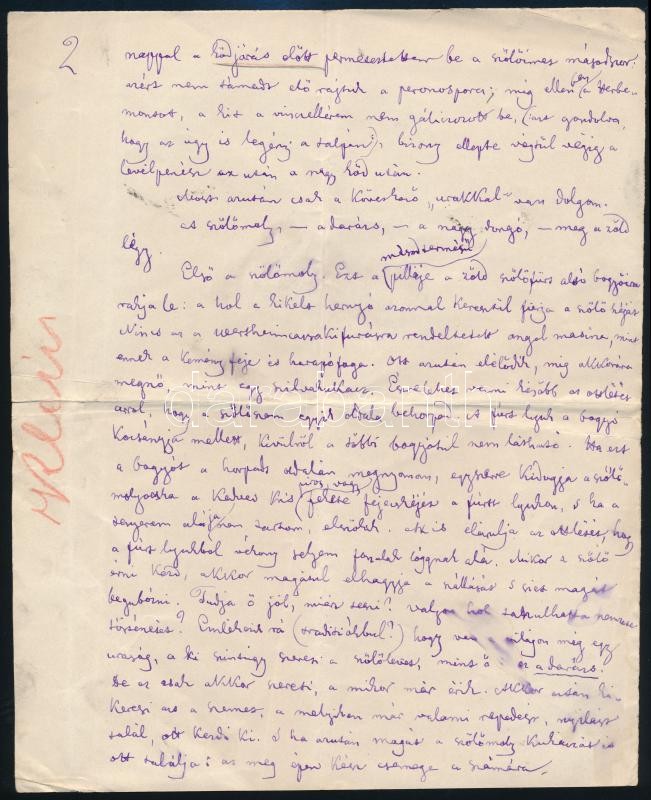 2
nappal a ködjárás előtt permeteztettem be a szőlőimet másodszor:
azért nem támadt elő rajtuk a peronospora; míg ellenben a Herbe-
montot, a kit a vinczellérem nem gáliczozott be, (azt gondolva,
hogy az úgy is legény a talpán), bizony ellepte végtül végig a
levélpenész az után a nagy köd után.
Most azután csak a következő „urakkal" van dolgom.
A szőlőmoly, — a darázs, — a nagy dongó, — meg a zöld
légy.
másodtermésű
Első a szőlőmoly. Ezt a pilléje a zöld szőlőfürt alsó bogyóira
rakja le: a hol a kikelt hernyó azonnal keresztül fúrja a szőlő héját
Nincs az a wertheimcassakifúrásra rendeltetett angol masina, mint
ennek a kemény feje és harapófoga. Ott azután élődik, míg akkorára
megnő, mint egy szilvakukacz. Észrevehetni később az ottlétét
arról, hogy a szőlőszem egyik oldala behorpad. A fúrt lyuk a bogyó
kocsánya mellett, kívülről a többi bogyótul nem látható. Ha ezt
a bogyót a horpadt oldalán megnyomom, egyszerre kidugja a szőlő-
piros vagy
molyocska a kedves kis fekete fejecskéjét a fúrt lyukon, s ha a
tenyerem alája nem tartom, elszökik. Azt is elárulja az ottlétét, hogy
a fúrt lyukból vékony selyem fonalak lógnak alá. Mikor a szőlő
érni kezd, akkor magátul elhagyja a szállását s siet magát
begubózni. Tudja ő jól, miért teszi? valyon hol tanulhatta a természe
történetét? Emlékszik rá (tradiczióbul?) hogy van a világon még egy
uraság, a ki szintúgy szereti a szőlőlevet, mint ő: az a darázs.
De az csak akkor szereti, a mikor már érik. Akkor aztán ki-
keresi azt a szemet, a melyiken már valami repedést, nyilást
talál, ott kezdi ki. S ha azután magát a szőlőmoly kukaczát is
ott találja: az meg épen kész csemege a számára.
Klein
darabanth